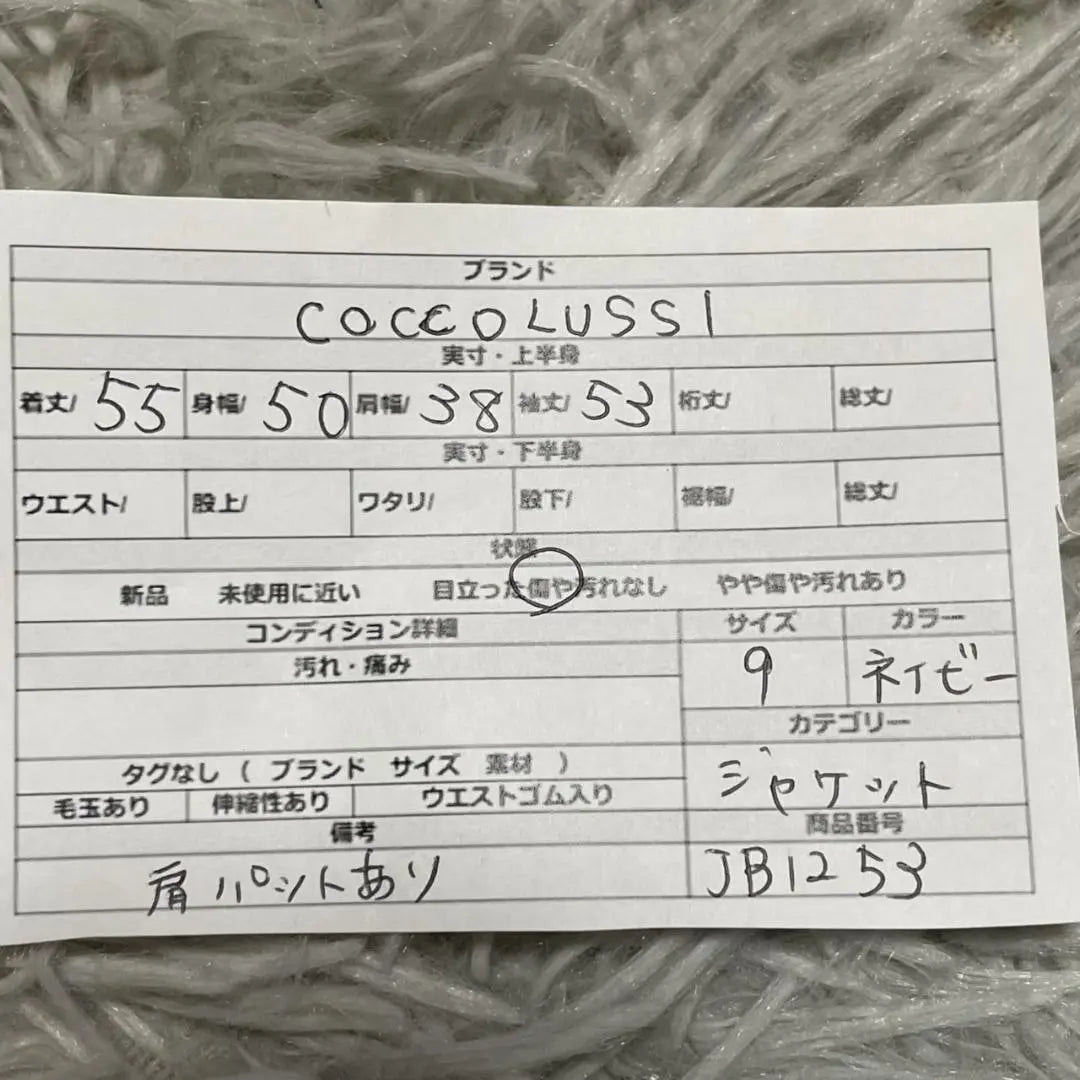 ブランド
COCCOLUSSI
実寸・上半身
着丈/ 55 身幅/ 50 肩幅/ 38 袖丈/ 53 裄丈/ 総丈/
実寸・下半身
ウエスト/ 股上/ ワタリ/ 股下/ 裾幅/ 総丈/
状態
新品 未使用に近い 目立った傷や汚れなし やや傷や汚れあり
コンディション詳細 サイズ カラー
汚れ・痛み 9 ネイビー
カテゴリー
タグなし ( ブランド サイズ 素材 ) ジャケット
毛玉あり 伸縮性あり ウエストゴム入り
備考 商品番号
肩パットあり JB1253